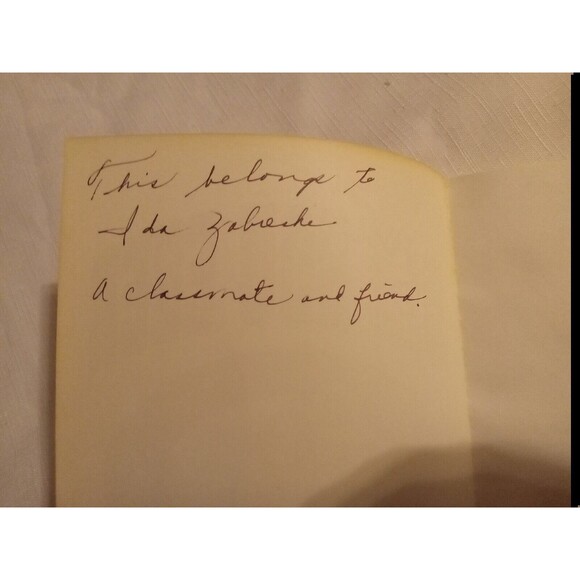 This belongs to
Ida Zabreske
A classmate and friend.